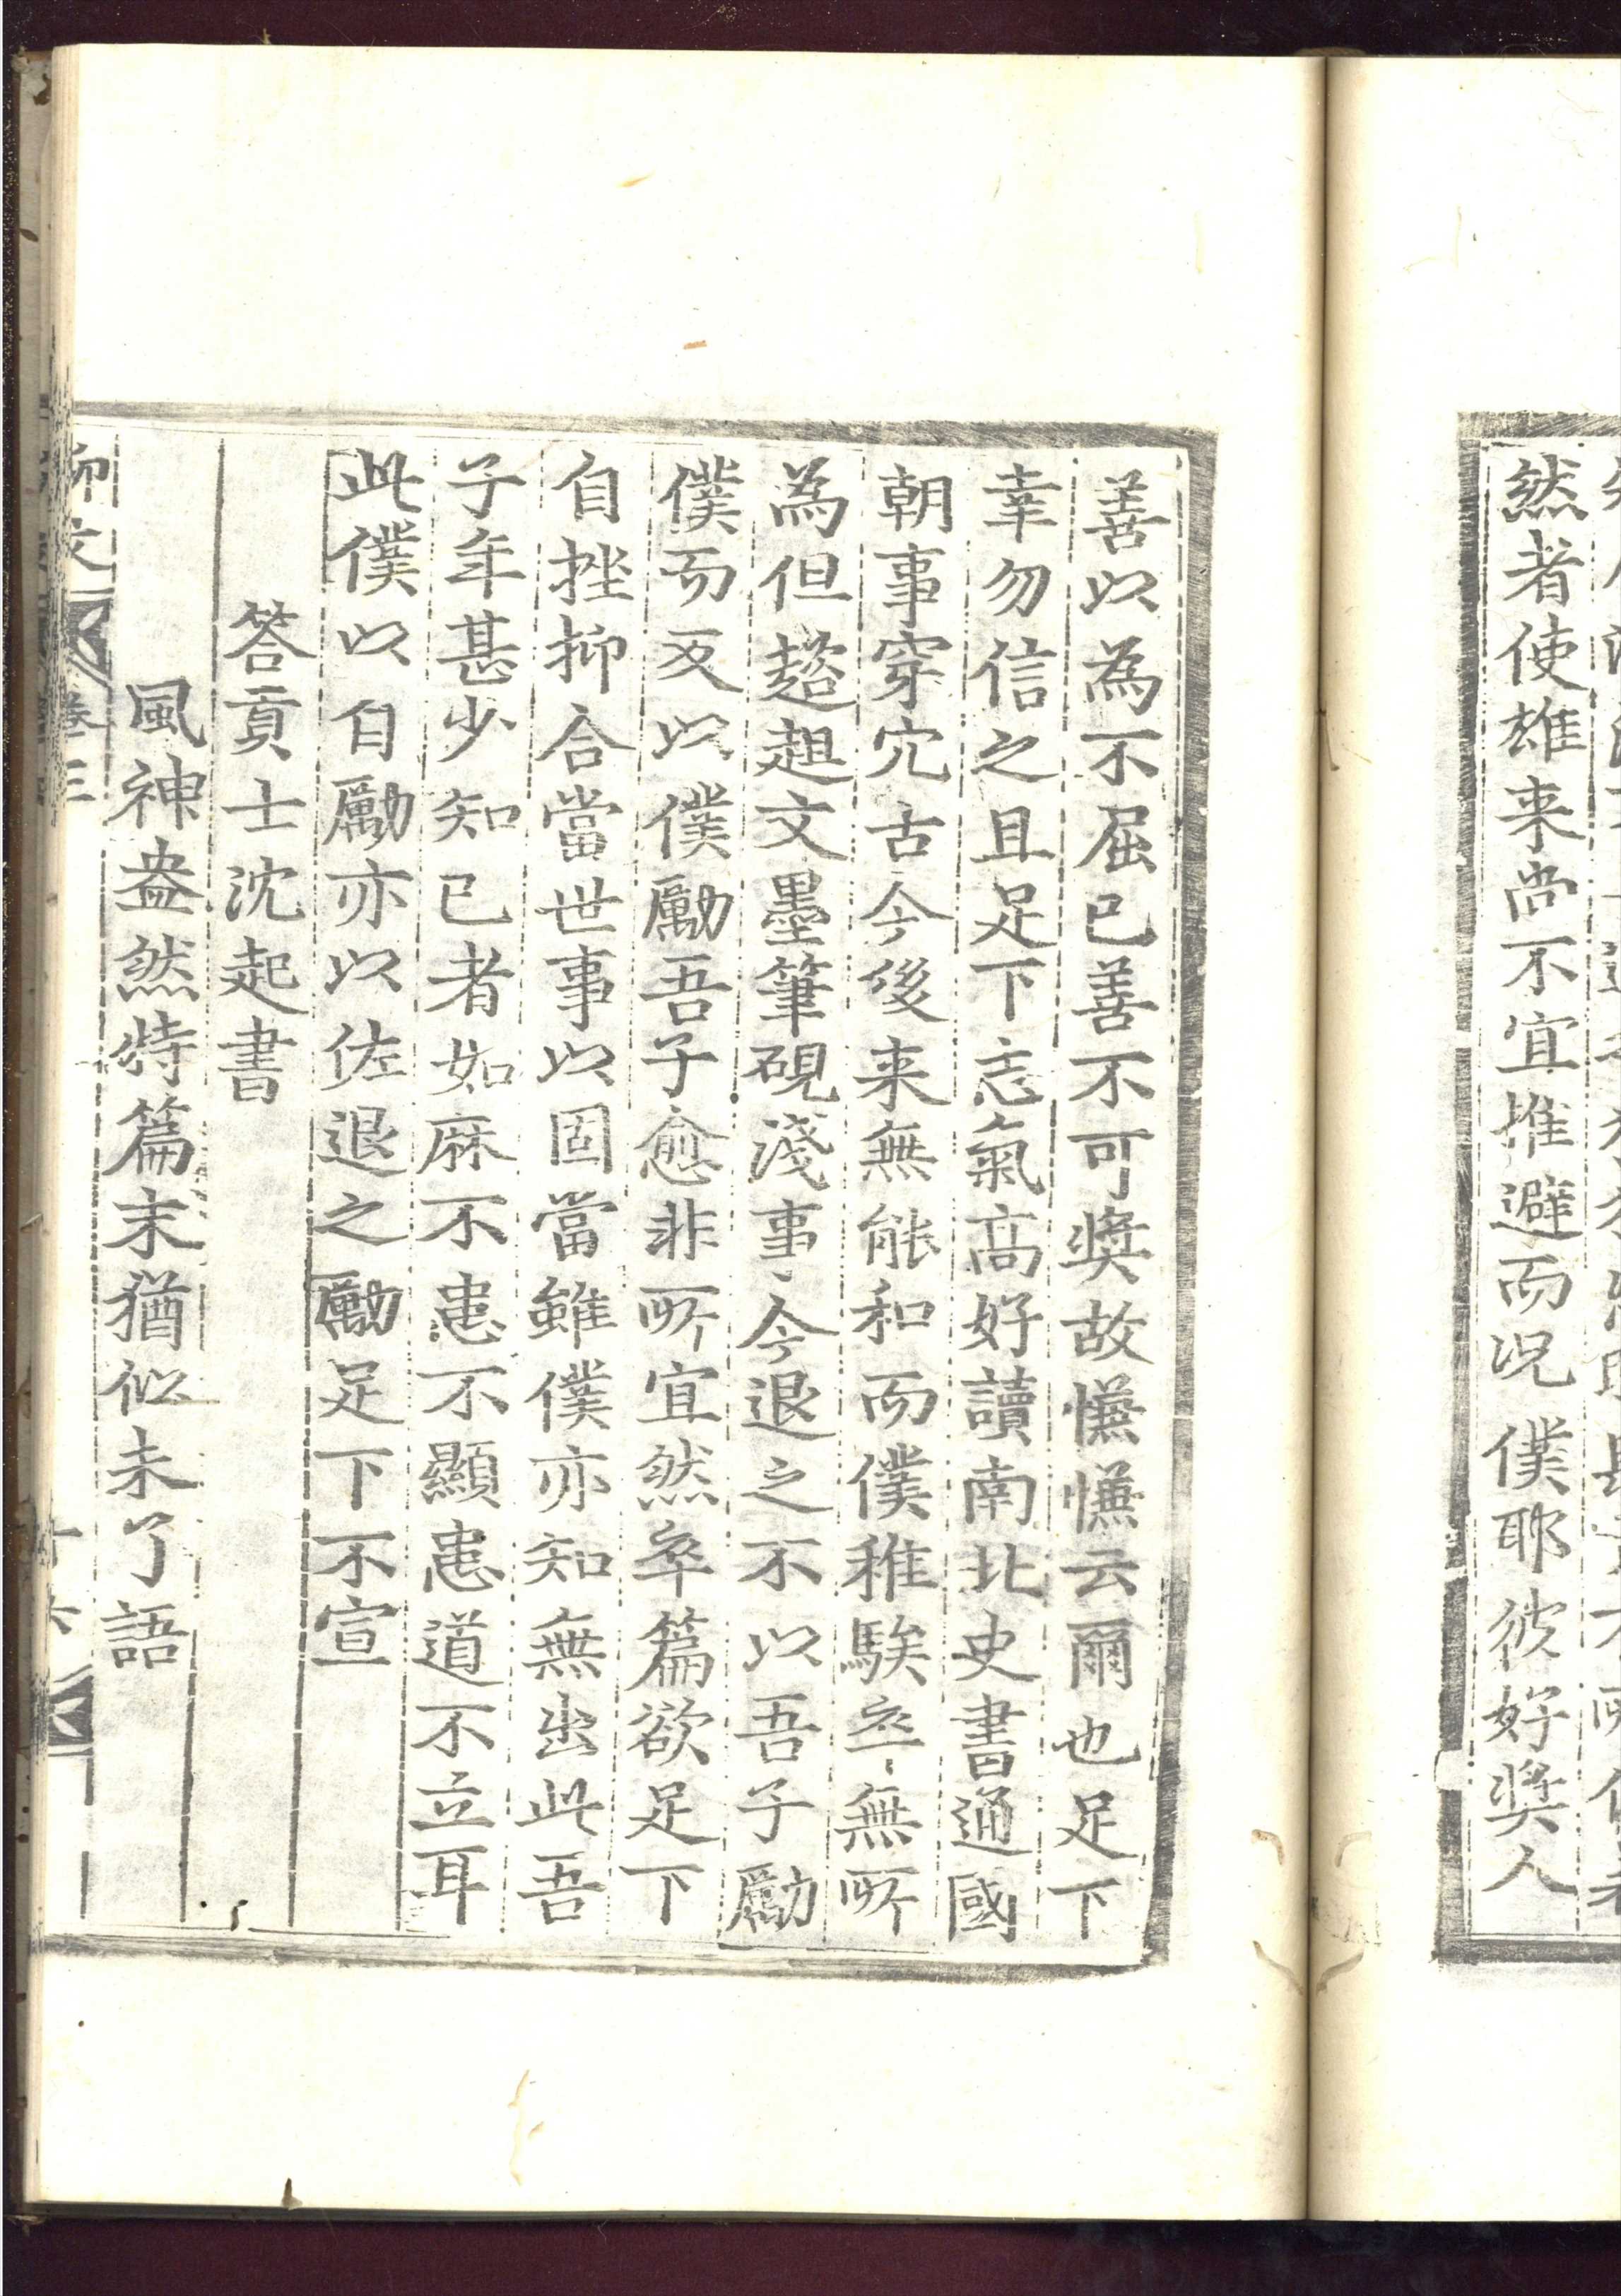 然者使雄来尚不宜推避而況僕耶彼好奨人
善以為不屈已善不可奨故慿慿云爾也足下
幸勿信之且足下志氣髙好讀南北史書通國
朝事穿穴古今後来無能和而僕稚騃卒無所
為但趑趄文墨筆硯淺事今退之不以吾子勵
僕而反以僕勵吾子愈非所宜然卒篇欲足下
自挫抑合當世事以固當雖僕亦知無出此吾
子年甚少知已者如麻不患不顯患道不立耳
此僕以自勵亦以佐退之勵足下不宣
答貢士沈起書
風神盎然特篇末猶似未了語
卷三